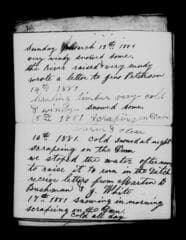 Sunday March 13th 1881
very windy snowed some.
the River raised very muddy
wrote a letter to
14th 1881
Hauling timber very cold
& windy snowed some
15th 1881 Scraping on Dam
warm & clear
16th 1881 cold snowed at night
scraping on the Dam
we stoped the water afternoon
to raise it to run in the Ditch
receive letters from Martin D
Bushman & J. White
17th 1881 snowing in morning
scraping on the Dam
cold all day